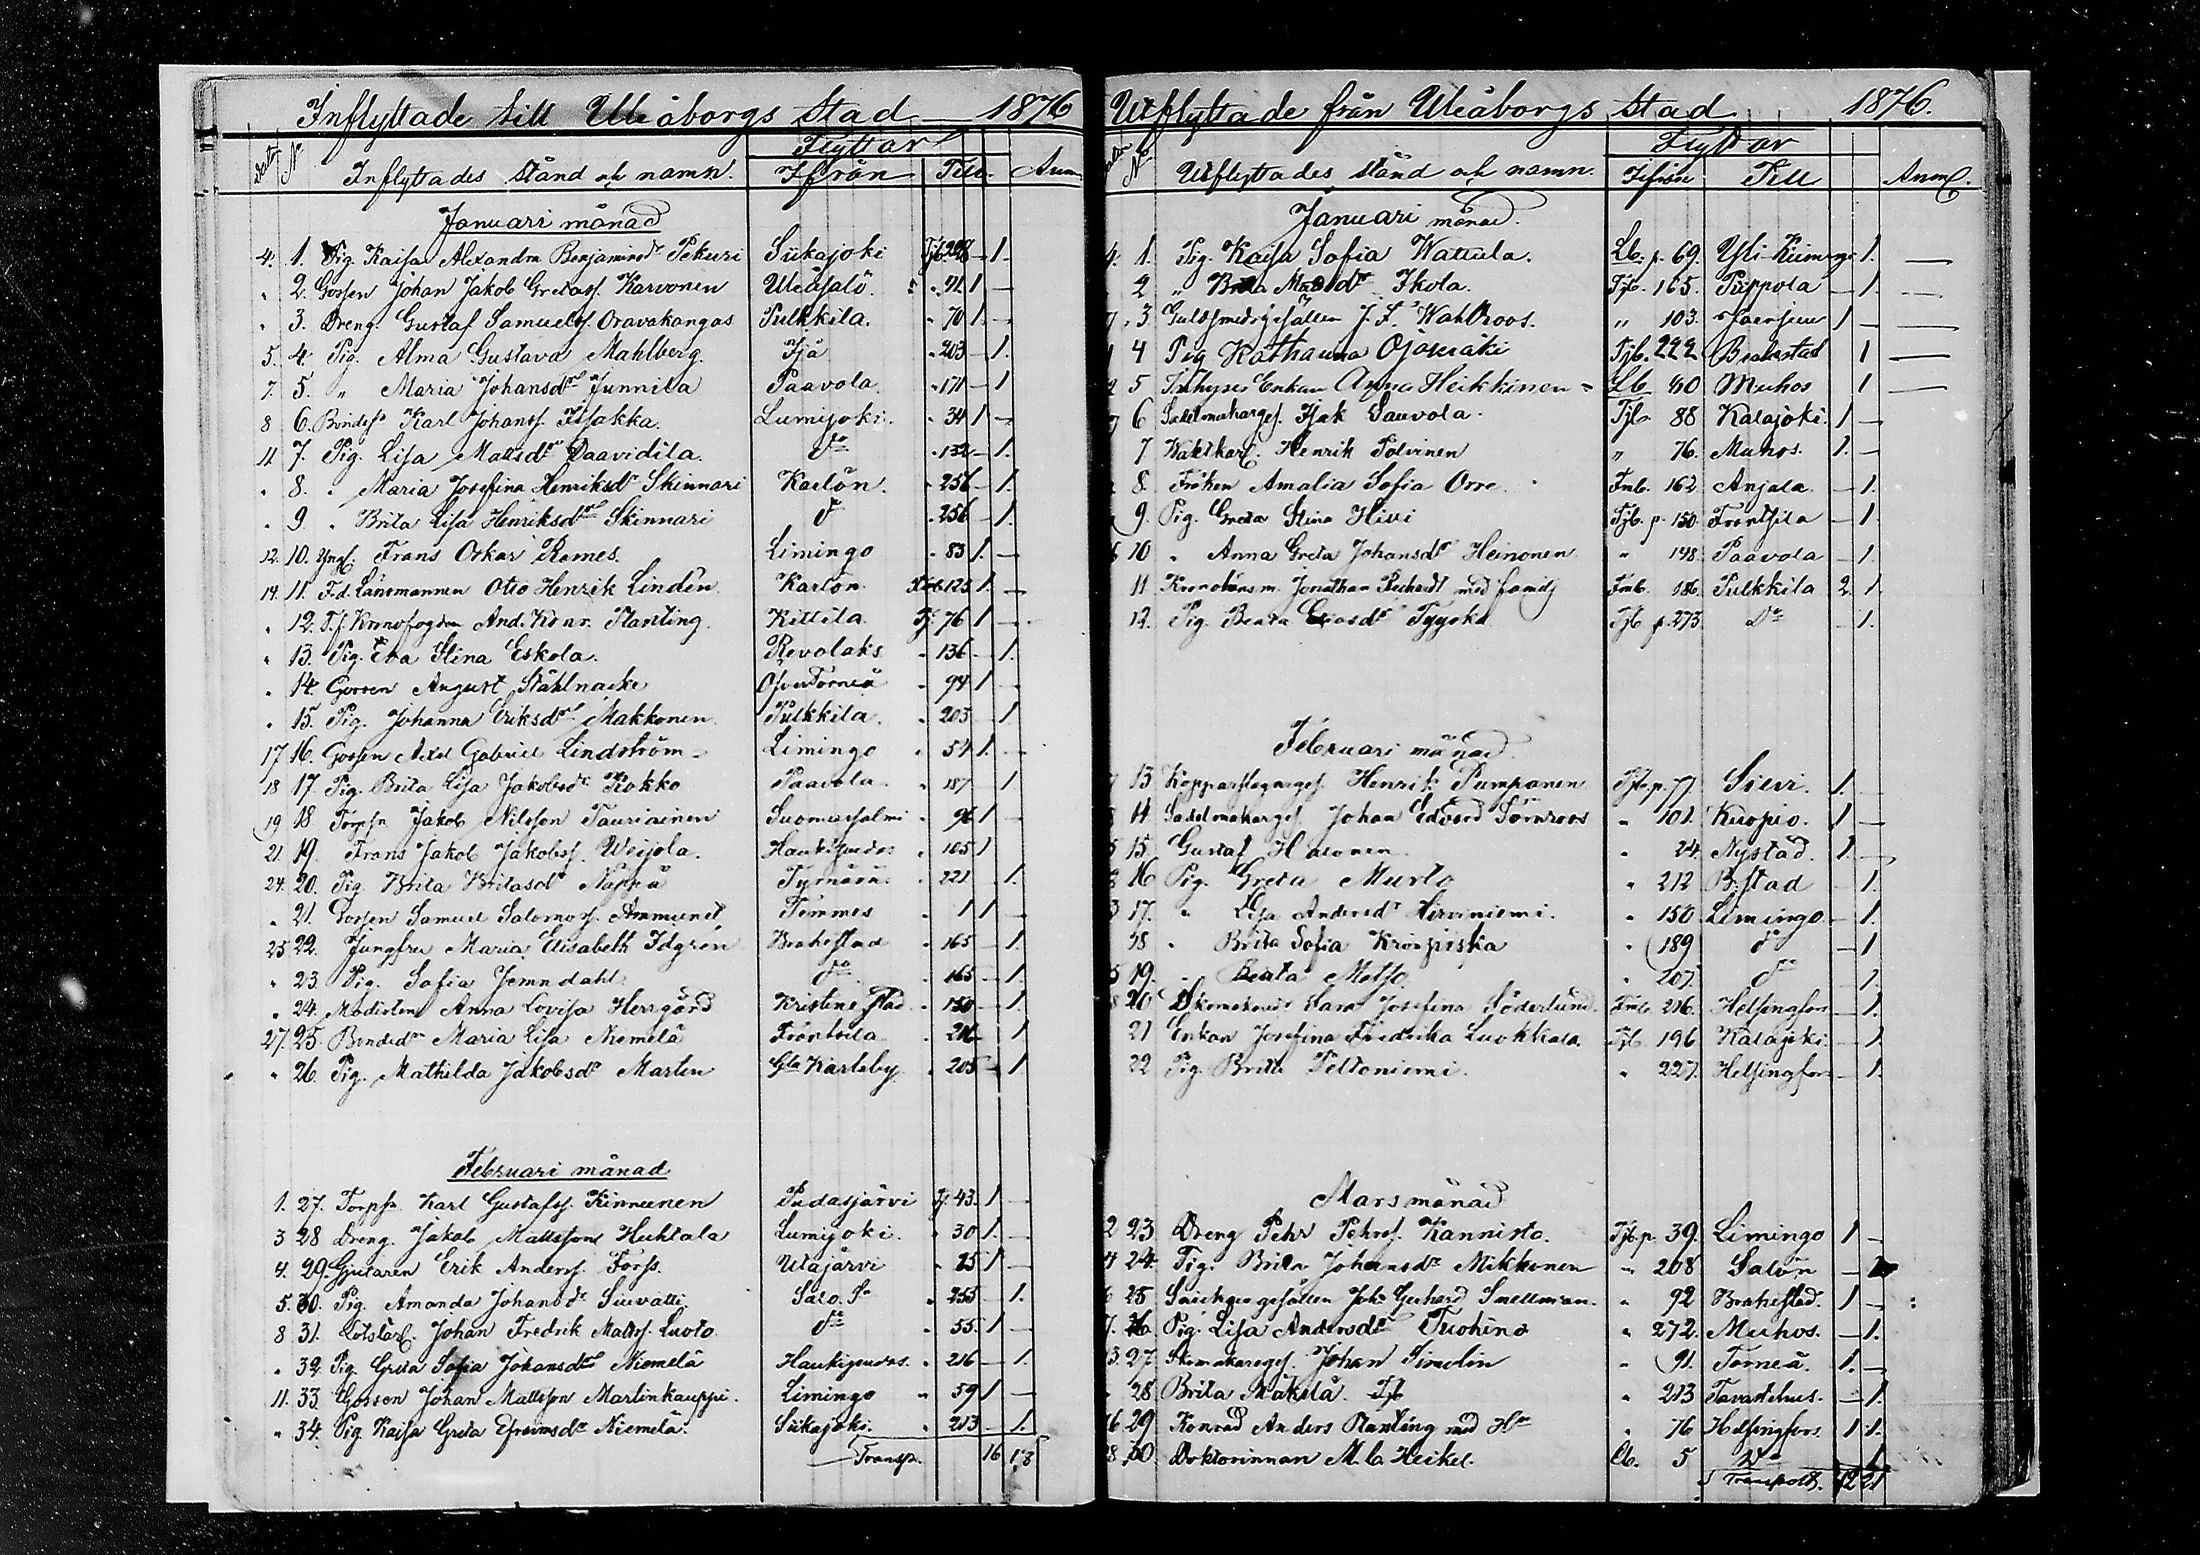 Inflyttade till Uleåborgs stad 1876
Flyttar
Datum No Inflyttades stånd och namn. Ifrån Till. Anm.
Januari månad
4. 1. Pig. Kaisa Alexandra Benjaminsdr Pekuri Siikajoki Tjb 298 - 1.
" 2. Gossen Johan Jakob Gretas. Karvonen Uleåsalo. " 91 1 -
" 3. Dreng. Gustaf Samuels. Oravakangas Pulkkila. " 70 1. -
5. 4. Pig. Alma Gustava Mahlberg. Ijå " 203 - 1.
7. 5. " Maria Johansdr Junnila Paavola " 171 - 1
8 6. Bondes. Karl Johans. Isakka. Lumijoki. " 34 1 -
11 7. Pig. Lisa Matsdr Daavidila. do " 132 - 1.
" 8. " Maria Josefina Henriksdr Skinnari Karlön. " 256 - 1.
" 9. " Brita Lisa Henriksdr Skinnari do " 256 - 1.
12. 10. Yngl. Frans Oskar Remes. Limingo " 83 1. -
14. 11. F.d. Länsmannen Otto Henrik Lindén Karlön 125 1. -
" 12. T.f. Kronofogden And. Konr. Planting Kittilä Tj. 76 1 -
" 13. Pig. Eva Stina Eskola. Revolaks " 136 - 1.
" 14. Gossen August Stählnacke ÖfverTorneå " 94 1 -
" 15. Pig. Johanna Eriksdr Makkonen Pulkkila. " 205 - 1.
17 16. Gossen Axel Gabriel Lindström Limingo " 54 1. -
18 17. Pig. Brita Lisa Jakobsdr Kokko Paavola " 187 - 1
19 18 Torps. Jakob Nilsson Tauriainen Suomussalmi " 96 1 -
21. 19. Frans Jakob Jakobs. Weijola. Haukipudas " 105 1
24. 20. Pig. Brita Britasdr Näppä Tyrnävä " 221 - 1.
" 21. Gossen Samuel Salomos. Ammunet Temmes " 1 1 -
25 22. Jungfru Maria Elisabeth Idgrén Brahestad " 165 - 1.
" 23. Pig. Sofia Jemndahl do " 165 - 1.
" 24. Modisten Anna Lovisa Herrgård Kristinestad " 150 - 1.
27. 25. Bondedr Maria Lisa Niemelä Frantsila " 216 - 1
" 26. Pig. Mathilda Jakobsdr Marten Gla Karleby " 205 - 1
Februari månad
1. 27. Torps. Karl Gustafs. Kinnunen Pudasjärvi Tj. 43. 1 -
3 28 Dreng. Jakob Mattsson Huhtala Lumijoki. " 30 1. -
4. 29. Gjutaren Erik Anders. Forss. Utajärvi " 25 1 -
5. 30. Pig. Amanda Johansdr Siuvatti. Salo. " 255 - 1.
8 31. Lotskarl. Johan Fredrik Matts. Luoto do " 55. 1 -
" 32. Pig. Greta Sofia Johansdr Niemelä Haukipudas. " 216 - 1.
11. 33. Gossen Johan Mattsson Martinkauppi. Limingo " 59 1 -
" 34. Pig Kaisa Greta Efraimsdr Niemelä. Siikajoki. " 213 - 1.
Transp. 16 18
Utflyttade från Uleåborgs stad 1876.
Flyttar
Datum No Utflyttades stånd och namn. Ifrån Till Anm.
Januari månad.
4. 1. Pig. Kaisa Sofia Wattula. Lb. p. 69. Yli-Kiiminge - 1. -
2 " Brita Matsdr Ikola. Tjb. 165. Piippola - 1. -
3. Guldsmedsgesällen J. F. Wahlroos. " 103. 1 - -
4 Pig Katharina Ojamäki Tjb. 222 Brahestad 1 -
5 Inhyses Enkan Anna Heikkinen Lb 40 Muhos 1 -
6 Sadelmakarges. Isak Sauvola. Tjb. 88 Kalajoki. 1 -
7 Henrik Polvinen " 76. Muhos. 1. -
8. Fröken Amalia Sofia Orre. Fmb. 162 Anjala. - 1.
9. Pig. Greta Stina Hiivi Tjb. p. 150. Frantsila - 1
10 " Anna Greta Johansdr Heinonen " 148. Paavola - 1.
11 Kronolänsm. Jonathan med familj Fmb. 186. Pulkkila 2 1.
12. Pig. Beata Tjb p. 273. Do - 1.
Februari månad
13 Kopparslagareges. Henrik Pumpanen Tjb. p. 77 Sievi. 1. -
14 Sadelmakarges. Johan Edvard Törnroos " 101. Kuopio. 1 -
15. Gustaf Halonen " 24. Nystad. 1. -
16 Pig. Greta Murto " 212 B.stad - 1.
17. " Lisa Andersdr Hirviniemi. " 150 Limingo - 1.
18 " Brita Sofia Kronqviska " 189 do - 1
19. " Beata Matso " 207. do - 1.
20. Sara Josefina Söderlund. Fmb. 216. Helsingfors - 1.
21 Enkan Josefina Fredrika Luokkala. Tjb 196 Kalajoki - 1
22 Pig. Britta Peltoniemi. " 227. Helsingfors - 1.
Mars månad
2 23 Dreng Pehr Pehrs. Kannisto. Tjb p. 39. Limingo 1 -
4 24. Pig. Brita Johansdr Mikkonen " 208 Salon - 1
25 gesällen Joh. Gerhard Snellman. " 92 Brahestad. 1 -
7. 26 Pig. Lisa Andersdr Tuohino " 272. Muhos. - 1.
13. 27. Skomakareges. Johan Simolin " 91. Torneå. 1. -
" 28 Brita Mäkelä. " 213 Tavastehus. - 1.
29 Konrad Anders Planting med Hu " 76 Helsingfors. 1 1.
30. Doktorinnan M. C. Heikel. Cb. 5 Do 1
Transport. 12 21